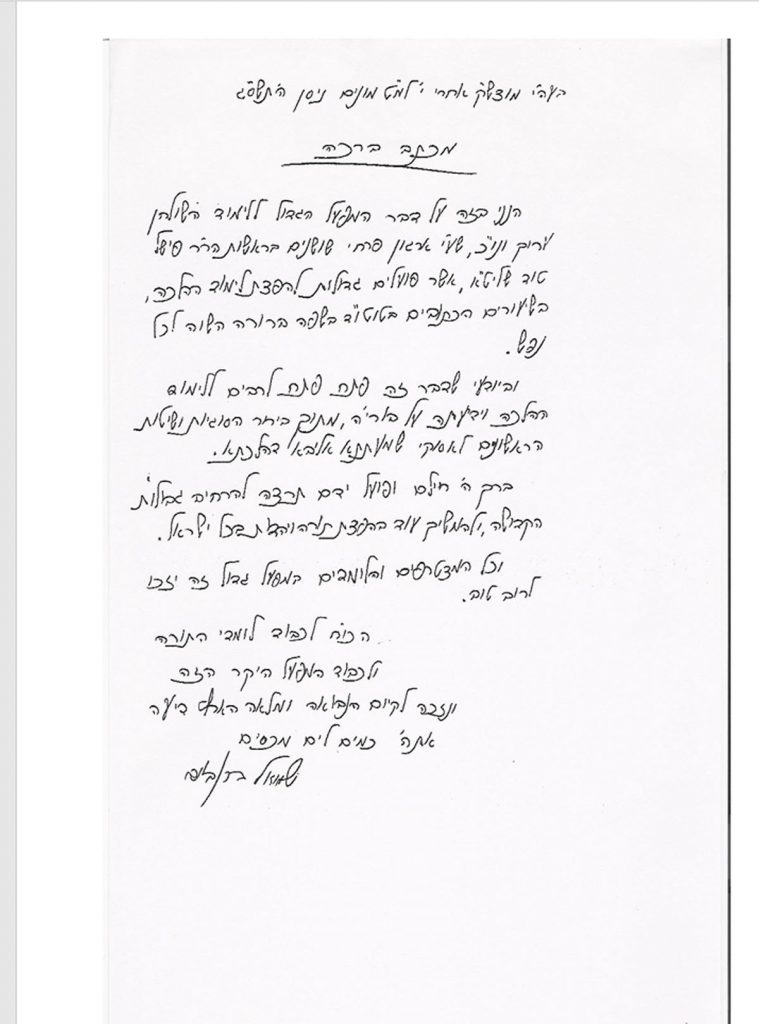 בעה"י מוצש"ק אחרי י' למט מונים ניסן ה'תשס"ג
מכתב ברכה
הנני בזה על דבר המפעל הגדול ללימוד השולחן
ערוך ונו"כ, שע"י ארגון פרחי שושנים בראשות הר"ר פישל
טוד שליט"א, אשר פועלים גדולות להפצת לימוד ההלכה,
בשיעורים הכתובים בטוטו"ד בשפה ברורה השוה לכל
נפש.
וביודעי שדבר זה פתח פתח לרבים ללימוד
ההלכה וידיעתה על בורי'ה, מתוך בירור הסוגיות ושיטות
הראשונים לאסוקי שמעתתא אליבא דהלכתא.
ברך ה' חילם ופועל ידם תרצה להרחיב גבולות
הקדושה, ולהמשיך עוד בהפצת תורה ויהדות בכל ישראל.
וכל המצטרפים והלומדים במפעל גדול זה יזכו
לרוב טוב.
הכו"ח לכבוד לומדי התורה
ולכבוד המפעל היקר הזה
ונזכה לקיום הנבואה ומלאה הארץ דיעה
את ה' כמים לים מכסים
שמואל